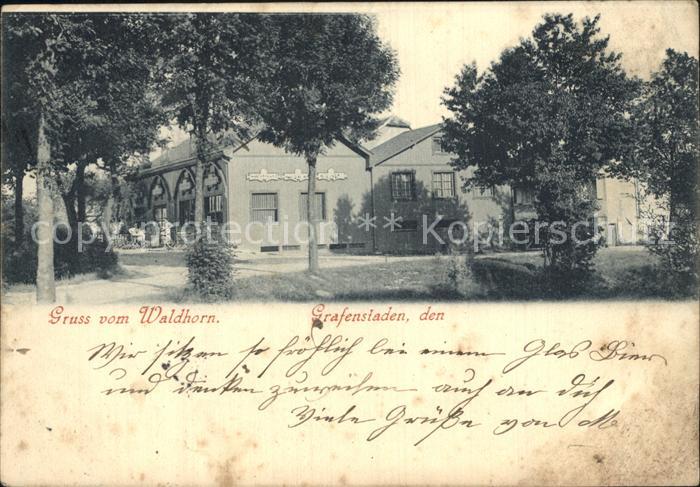 Gruss vom Waldhorn. Grafenstaden, den
Wir sitzen so fröhlich bei einem Glas Bier
und denken zuweilen auch an dich
Viele Grüße von M
Copyright *** Kopierschutz